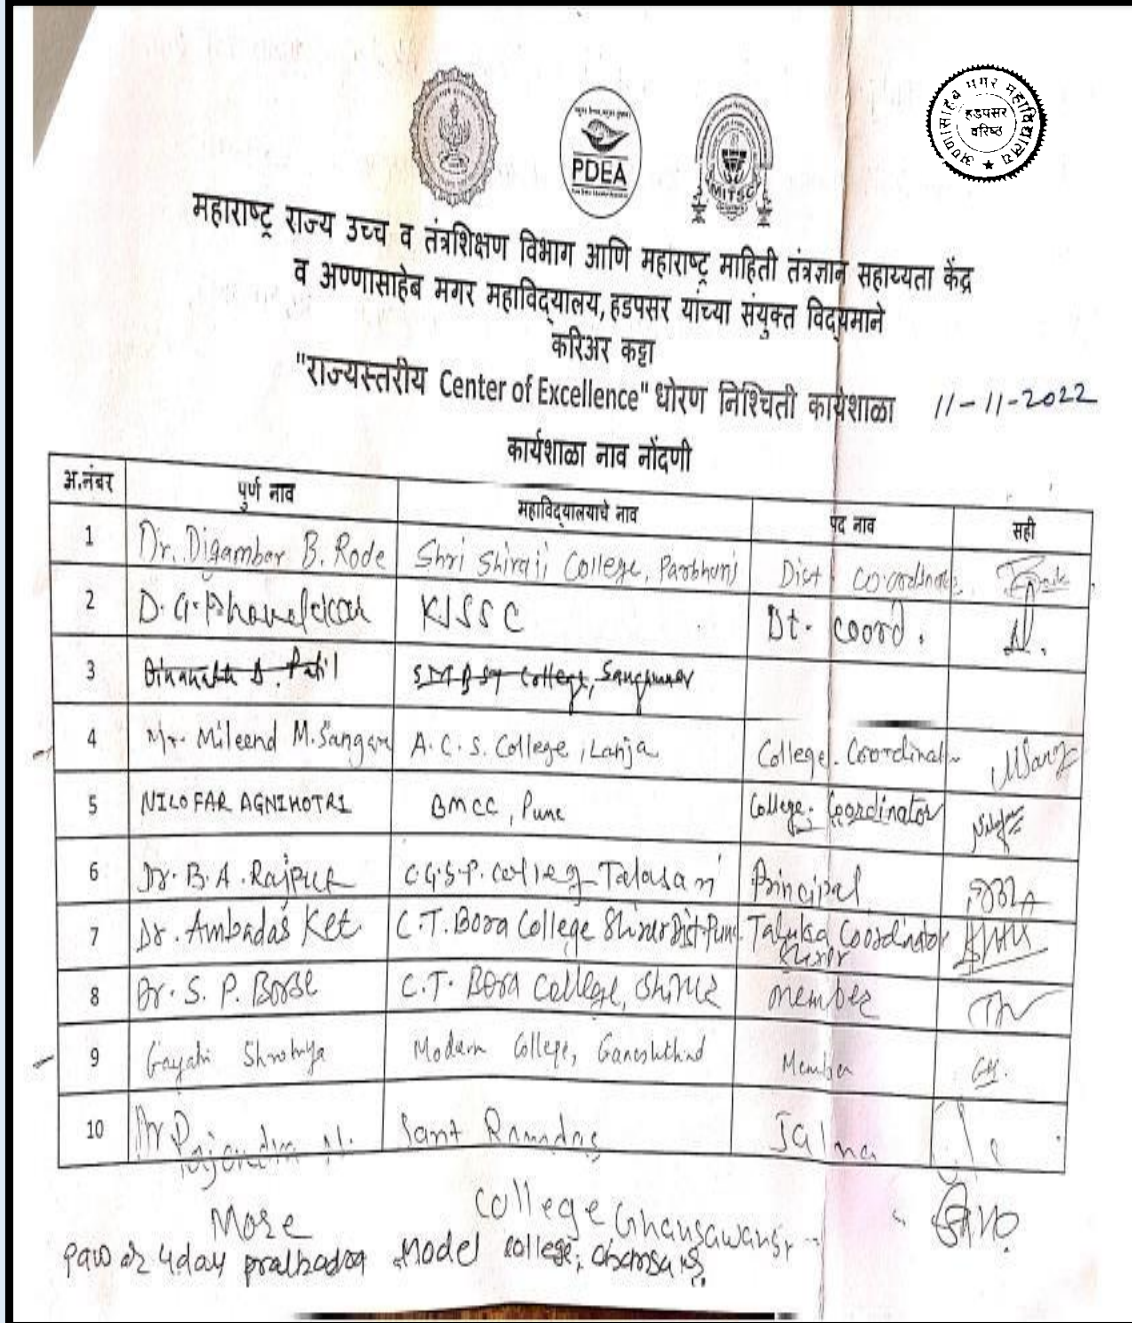 PDEA
MITSC
अण्णासाहेब मगर महाविद्यालय
हडपसर
वरिष्ठ
महाराष्ट्र राज्य उच्च व तंत्रशिक्षण विभाग आणि महाराष्ट्र माहिती तंत्रज्ञान सहाय्यता केंद्र
व अण्णासाहेब मगर महाविद्यालय, हडपसर यांच्या संयुक्त विद्यमाने
करिअर कट्टा
"राज्यस्तरीय Center of Excellence" धोरण निश्चिती कार्यशाळा 11-11-2022
कार्यशाळा नाव नोंदणी
अ.नंबर पुर्ण नाव महाविद्यालयाचे नाव पद नाव सही
1 Dr. Digambar B. Rode Shri Shivaji College, Parbhani Dist Coordinator
2 D. G. KJSSC Dt. Coord.
3 Patil College,
4 Mr. Mileend M. Sangare A.C.S. College, Lanja College Coordinator
5 NILOFAR AGNIHOTRI BMCC, Pune College Coordinator
6 Dr. B. A. Rajput C.G.S.P. College Talasari Principal
7 Dr. Ambadas Ket C.T. Bora College Shirur Dist-Pune Taluka Coordinator
Shirur
8 Dr. S. P. Borse C.T. Bora College, Shirur member
9 Gayatri Modern College, Ganeshkhind Member
10 Dr Rajendra N. Sant Ramdas Jalna
More College Ghansawangi
Pawar Uday pralhadrao Model college,